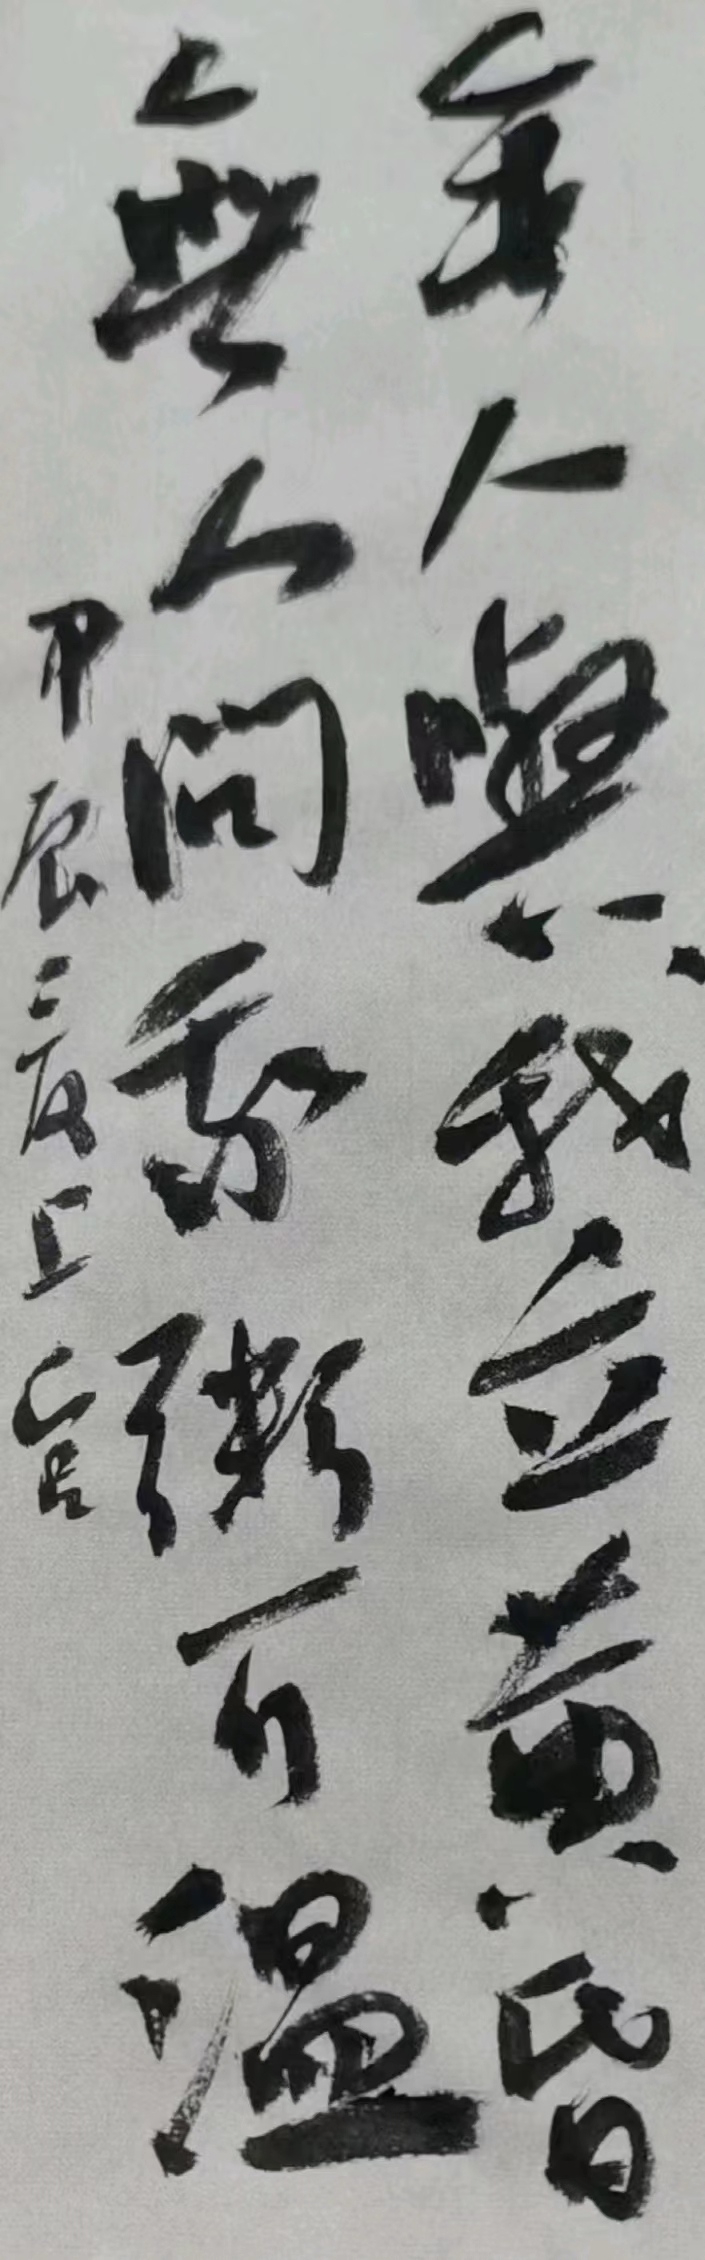 無人與我立黃昏
無人問我粥可溫
甲辰夏上官